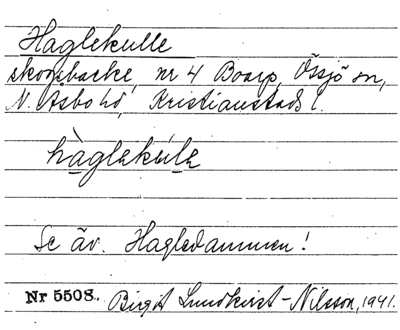 Haglekulle
skogsbacke, nr 4 Boarp, Össjö sn,
N. Åsbo hd, Kristianstads l.
hàglekúle
Se äv. Hagledammen!
Nr 5508. Birgit Lundkvist-Nilsson, 1941.